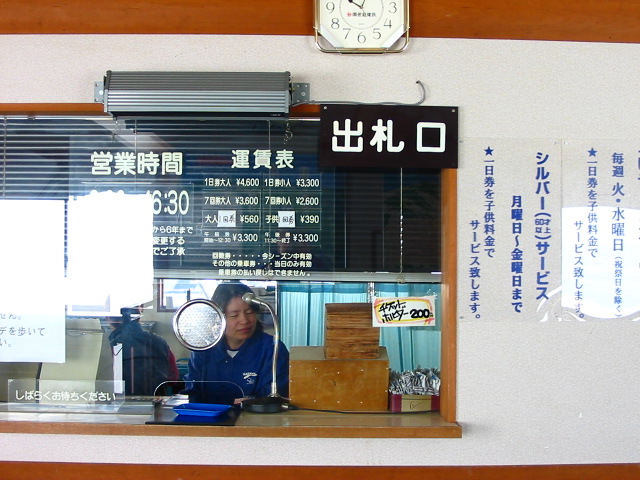 出札口
営業時間
6:30
から6年まで
変更する
でご了承
運賃表
1日券大人 ¥4,600 1日券小人 ¥3,300
7回券大人 ¥3,600 7回券小人 ¥2,600
大人 回券 ¥560 子供 回券 ¥390
午前券 開始〜12:30 ¥3,300 午後券 11:30〜終了 ¥3,300
回数券・・・・・今シーズン中有効
その他の乗車券・・・当日のみ有効
乗車券の払い戻しはできません。
チケットホルダー 200
しばらくお待ちください
せん。
デを歩いて
い。
シルバー(60才以上)サービス
月曜日〜金曜日まで
★一日券を子供料金で
サービス致します。
毎週 火・水曜日(祝祭日を除く)
★一日券を子供料金で
サービス致します。